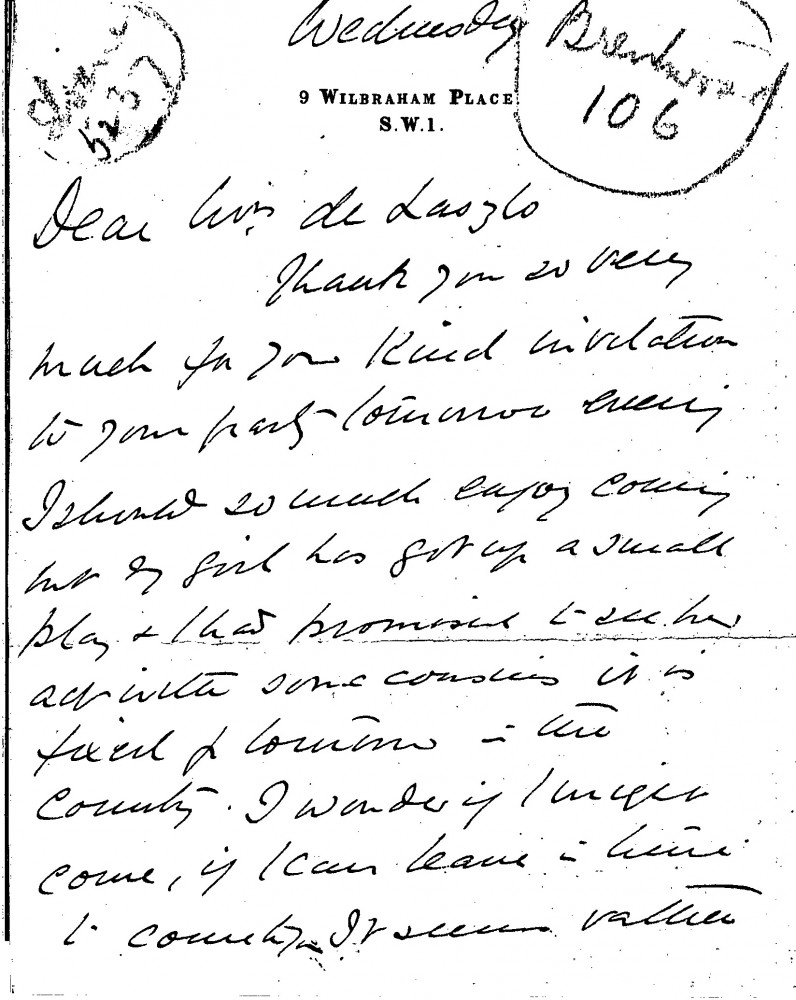 Wednesday
Sloane
5237
Brentwood
106
9 WILBRAHAM PLACE
S.W.1.
Dear Mrs de Laszlo
Thank you so very
much for your kind invitation
to your party tomorrow evening
I should so much enjoy coming
but my girl has got up a small
play & I had promised to see her
act with some cousins it is
fixed for tomorrow in the
Country. I wonder if I might
come, if I can leave in time
to country. It seems rather